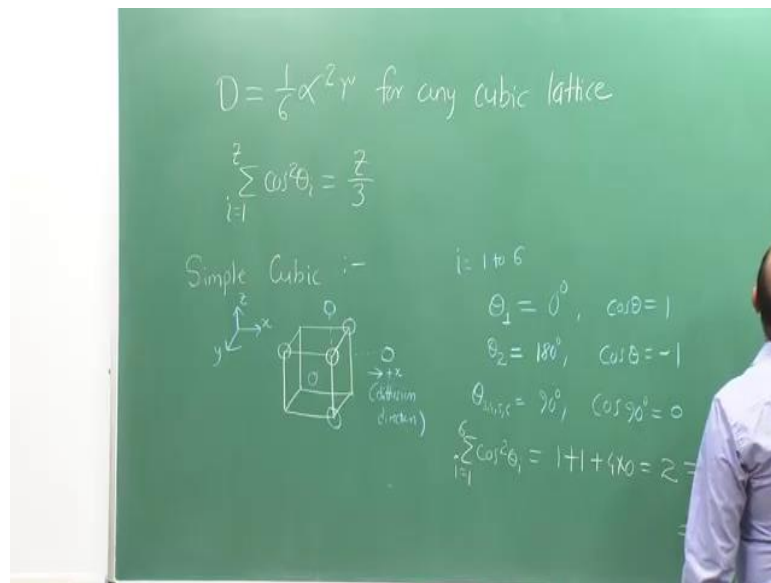 D = 1/6 α²Γ for any cubic lattice
z
Σ cos²θᵢ = z/3
i=1
Simple Cubic :-
z
x
y
→ +x
(diffusion
direction)
i = 1 to 6
θ₁ = 0°, cosθ = 1
θ₂ = 180°, cosθ = -1
θ₃,₄,₅,₆ = 90°, cos 90° = 0
6
Σ cos²θᵢ = 1+1+4×0 = 2 =
i=1
=